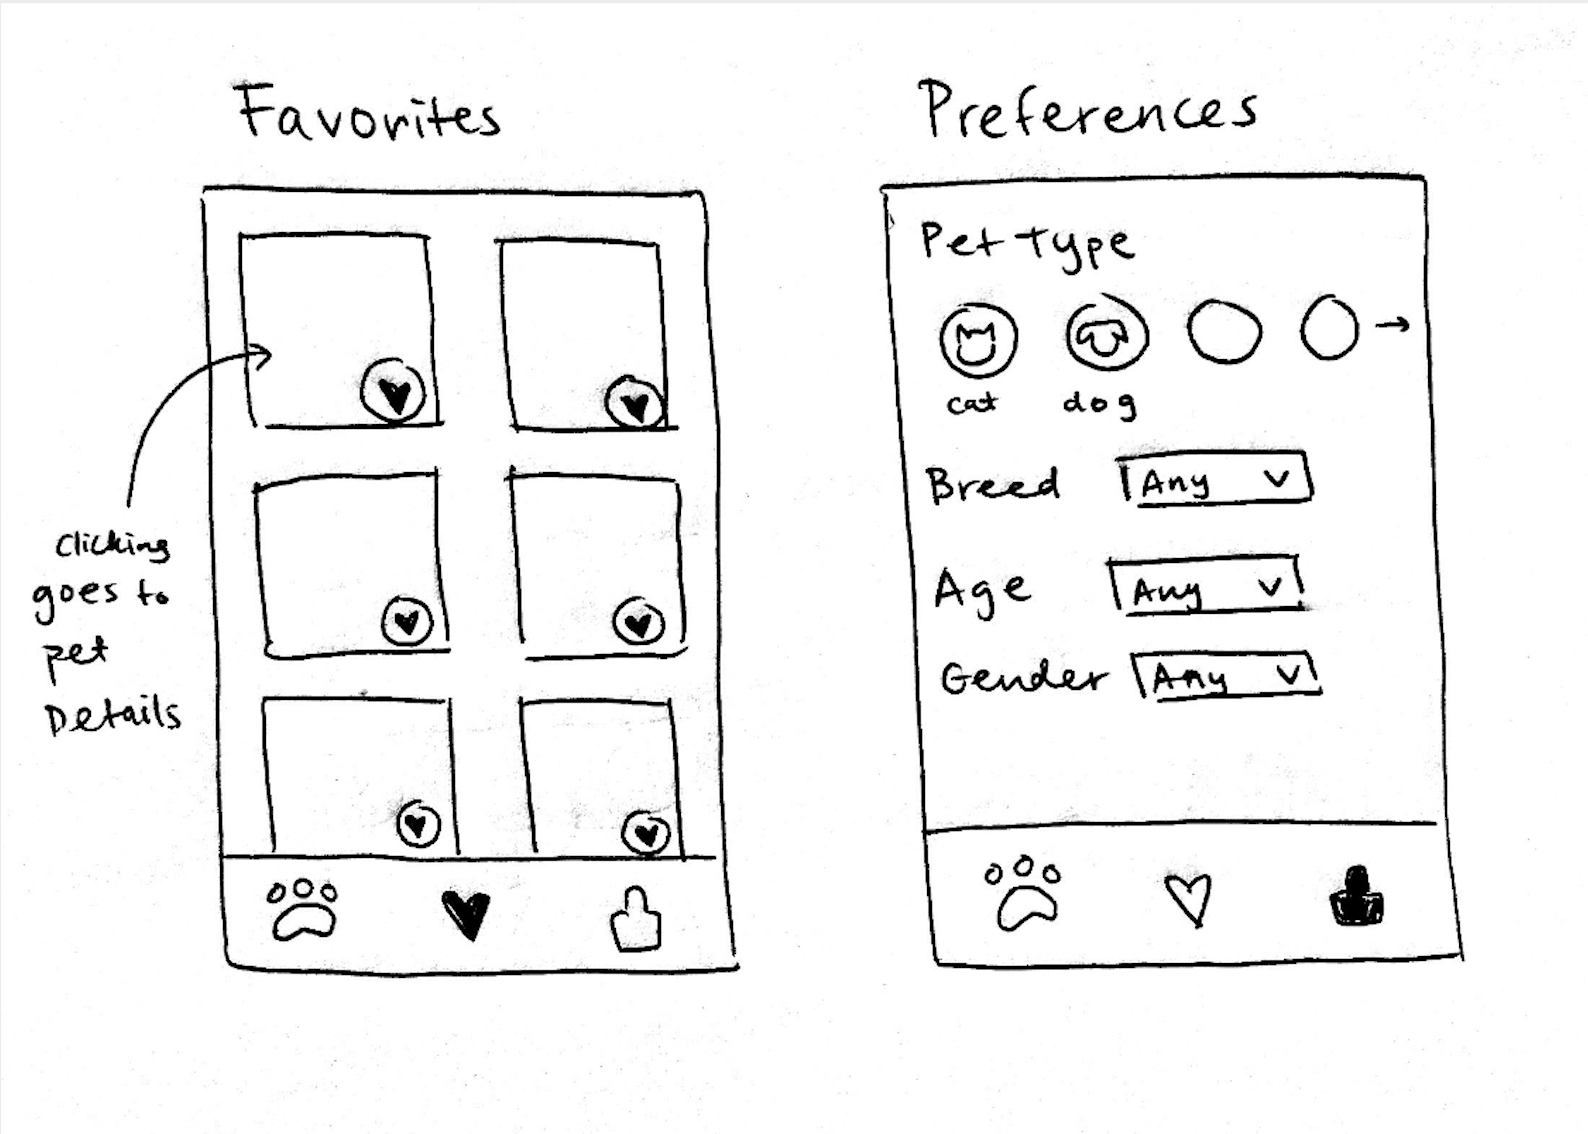 Favorites
Clicking
goes to
pet
Details
Preferences
Pet Type
cat dog
Breed Any
Age Any
Gender Any